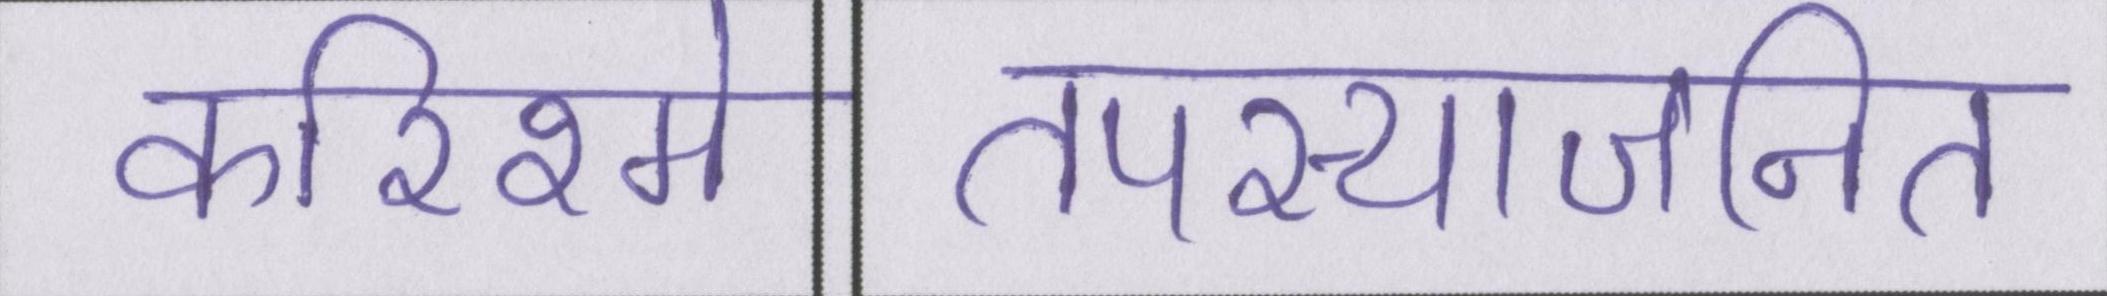 करिश्मे तपस्याजनित